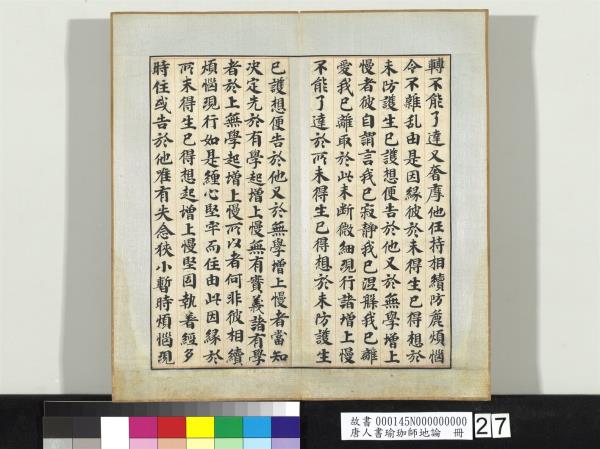 轉不能了達又奢摩他任持相續防麁煩惱
令不雜乱由是因緣彼於未得生已得想於
未防護生已護想便告於他又於無學增上
慢者彼自謂言我已寂靜我已涅槃我已離
愛我已離取於此未断微細現行諸增上慢
不能了達於所未得生已得想於未防護生
已護想便告於他又於無學增上慢者當知
決定先於有學起增上慢無有實義諸有學
者於上無學起增上慢所以者何非彼相續
煩惱現行如是纏心堅牢而住由此因緣於
所未得生已得想起增上慢堅固執著經多
時住或告於他唯有失念狹小暫時煩惱現
故書 000145N000000000
唐人書瑜珈師地論 冊
27